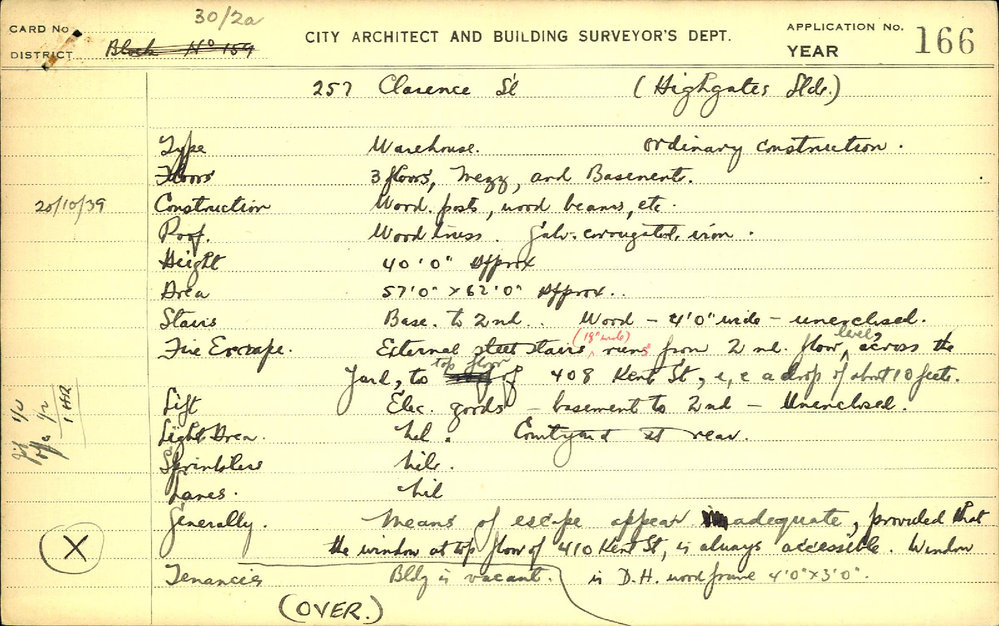 30/2a
CARD No.
DISTRICT Block No 159
CITY ARCHITECT AND BUILDING SURVEYOR'S DEPT.
APPLICATION No. 166
YEAR
257 Clarence St (Highgates Bldg.)
Type Warehouse. Ordinary construction.
Floors 3 floors, Mezz, and Basement.
20/10/39
Construction Wood. posts, wood beams, etc
Roof. Wood truss. Galv. corrugated iron.
Height 40'0" Approx
Area 57'0" x 62'0" Approx..
Stairs Base. to 2nd.. Wood - 4'0" wide - unenclosed.
Fire Escape. External steel stairs (18" wide) runs from 2nd. floor level, across the
yard, to top floor of 408 Kent St, i.e a drop of about 10 feet.
Lift Elec. goods - basement to 2nd - Unenclosed.
1/2
1/2
1 HR
Light Area. Nil. Courtyard at rear.
Sprinklers Nil.
Lanes. Nil
Generally. Means of escape appear adequate, provided that
the window at top floor of 410 Kent St, is always accessible. Window
X
Tenancies Bldg is vacant. is D.H. wood frame 4'0" x 3'0".
(OVER.)